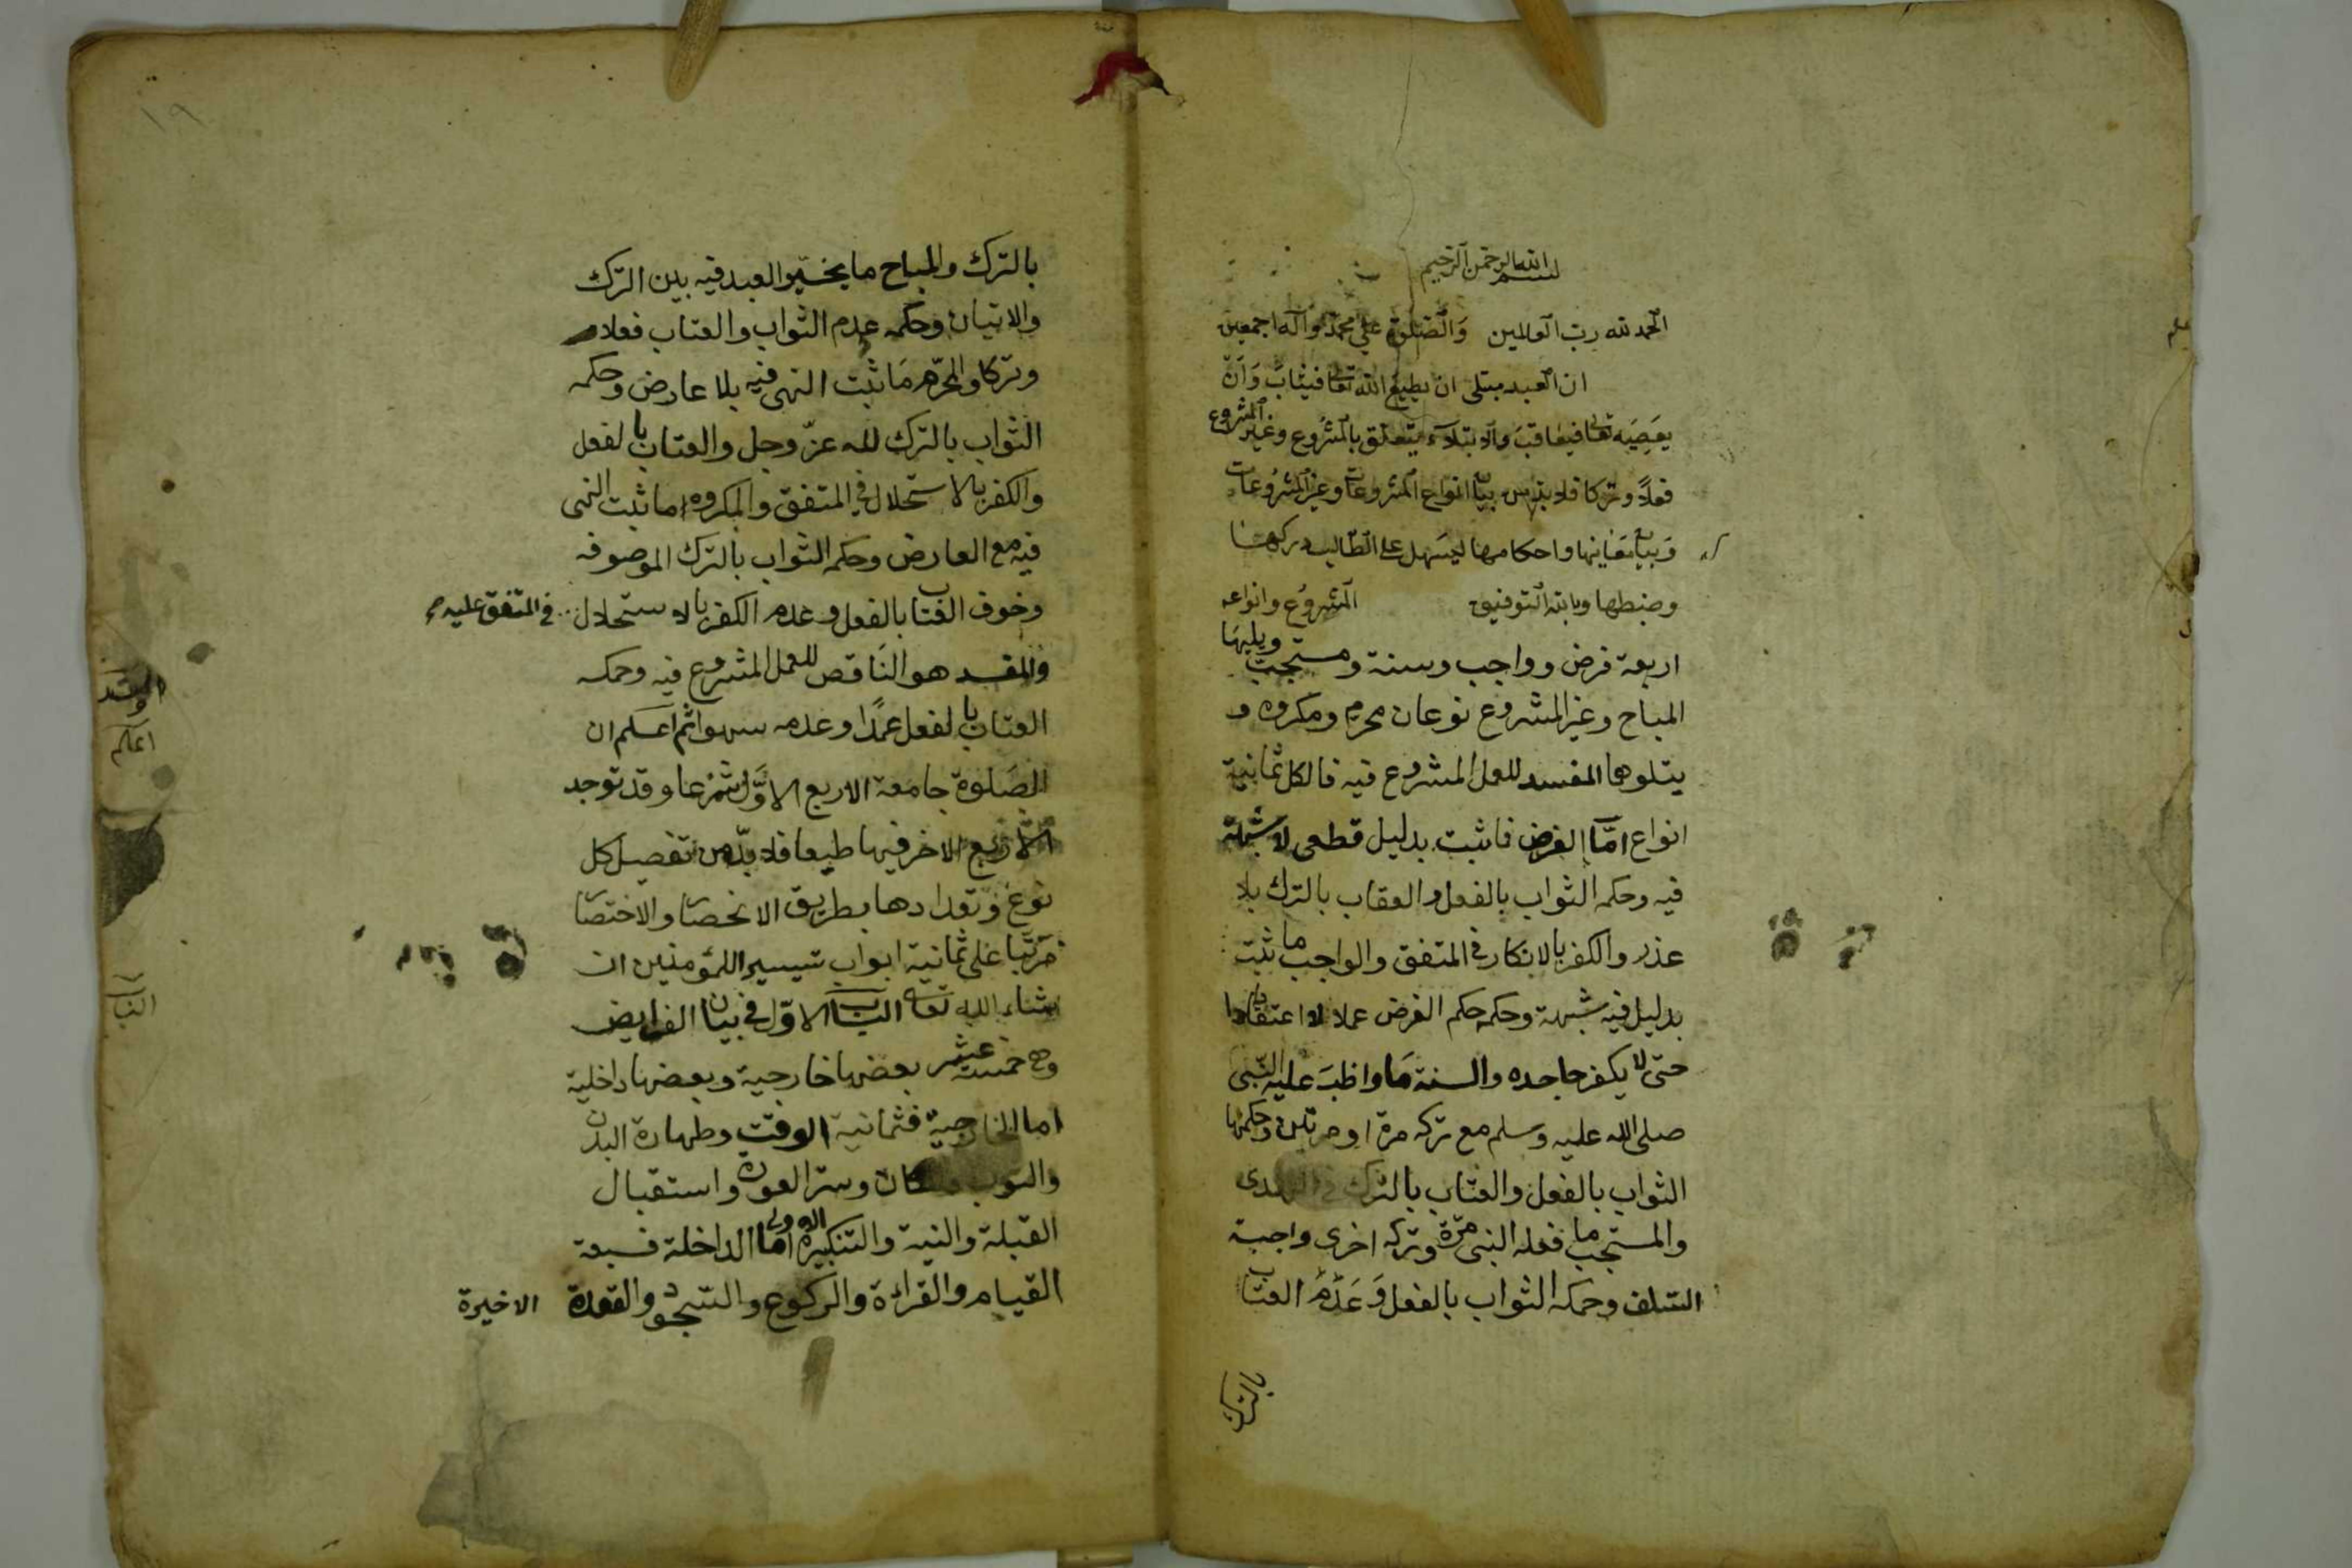 بسم الله الرحمن الرحيم
الحمد لله رب العالمين والصلوة على محمد وآله اجمعين
ان العبد مبتلى ان يطيع الله تعالى فيثاب وان
يعصيه تعالى فيعاقب والابتلاء يتعلق بالمشروع وغير المشروع
فعلا وتركا فلا بد من بيان انواع المشروعات وغير المشروعات
وبيان معانيها واحكامها ليسهل على الطالب دركها
وضبطها وبالله التوفيق المشروع وانواعه
اربعة فرض وواجب وسنة ومستحب ويليها
المباح وغير المشروع نوعان محرم ومكروه و
يتلوها المفسد للعمل المشروع فيه فالكل ثمانية
انواع اما الفرض فما ثبت بدليل قطعى لا شبهة
فيه وحكمه الثواب بالفعل والعقاب بالترك بلا
عذر والكفر بالانكار فى المتفق والواجب ما ثبت
بدليل فيه شبهة وحكمه حكم الفرض عملا لا اعتقادا
حتى لا يكفر جاحده والسنة ما واظب عليه النبى
صلى الله عليه وسلم مع تركه مرة او مرتين وحكمها
الثواب بالفعل والعتاب بالترك فى الهدى
والمستحب ما فعله النبى مرة وتركه اخرى واحبه
السلف وحكمه الثواب بالفعل وعدم العتاب
بالترك
١٩
بالترك والمباح ما يخير العبد فيه بين الترك
والاتيان وحكمه عدم الثواب والعتاب فعلا
وتركا والمحرم ما ثبت النهى فيه بلا عارض وحكمه
الثواب بالترك لله عز وجل والعتاب بالفعل
والكفر بالاستحلال فى المتفق والمكروه ما ثبت النهى
فيه مع العارض وحكمه الثواب بالترك الموصوفه
وخوف العتاب بالفعل وعدم الكفر بالاستحلال فى المتفق عليه
والمفسد هو الناقض للعمل المشروع فيه وحكمه
العتاب بالفعل عمدا وعدمه سهوا ثم اعلم ان
الصلوة جامعة الاربع الاول شرعا وقد توجد
الاربع الاخر فيها طبعا فلا بد من تفصيل كل
نوع وتعدادها بطريق الانحصار والاختصار
مرتبا على ثمانية ابواب تيسيرا للمؤمنين ان
شاء الله تعالى الباب الاول فى بيان الفرايض
وهى خمسة عشر بعضها خارجية وبعضها داخلية
اما الخارجية فثمانية الوقت وطهارة البدن
والثوب والمكان وستر العورة واستقبال
القبلة والنية والتكبيرة الاولى اما الداخلة فسبعة
القيام والقراءة والركوع والسجود والقعدة الاخيرة
اعلم
الباب